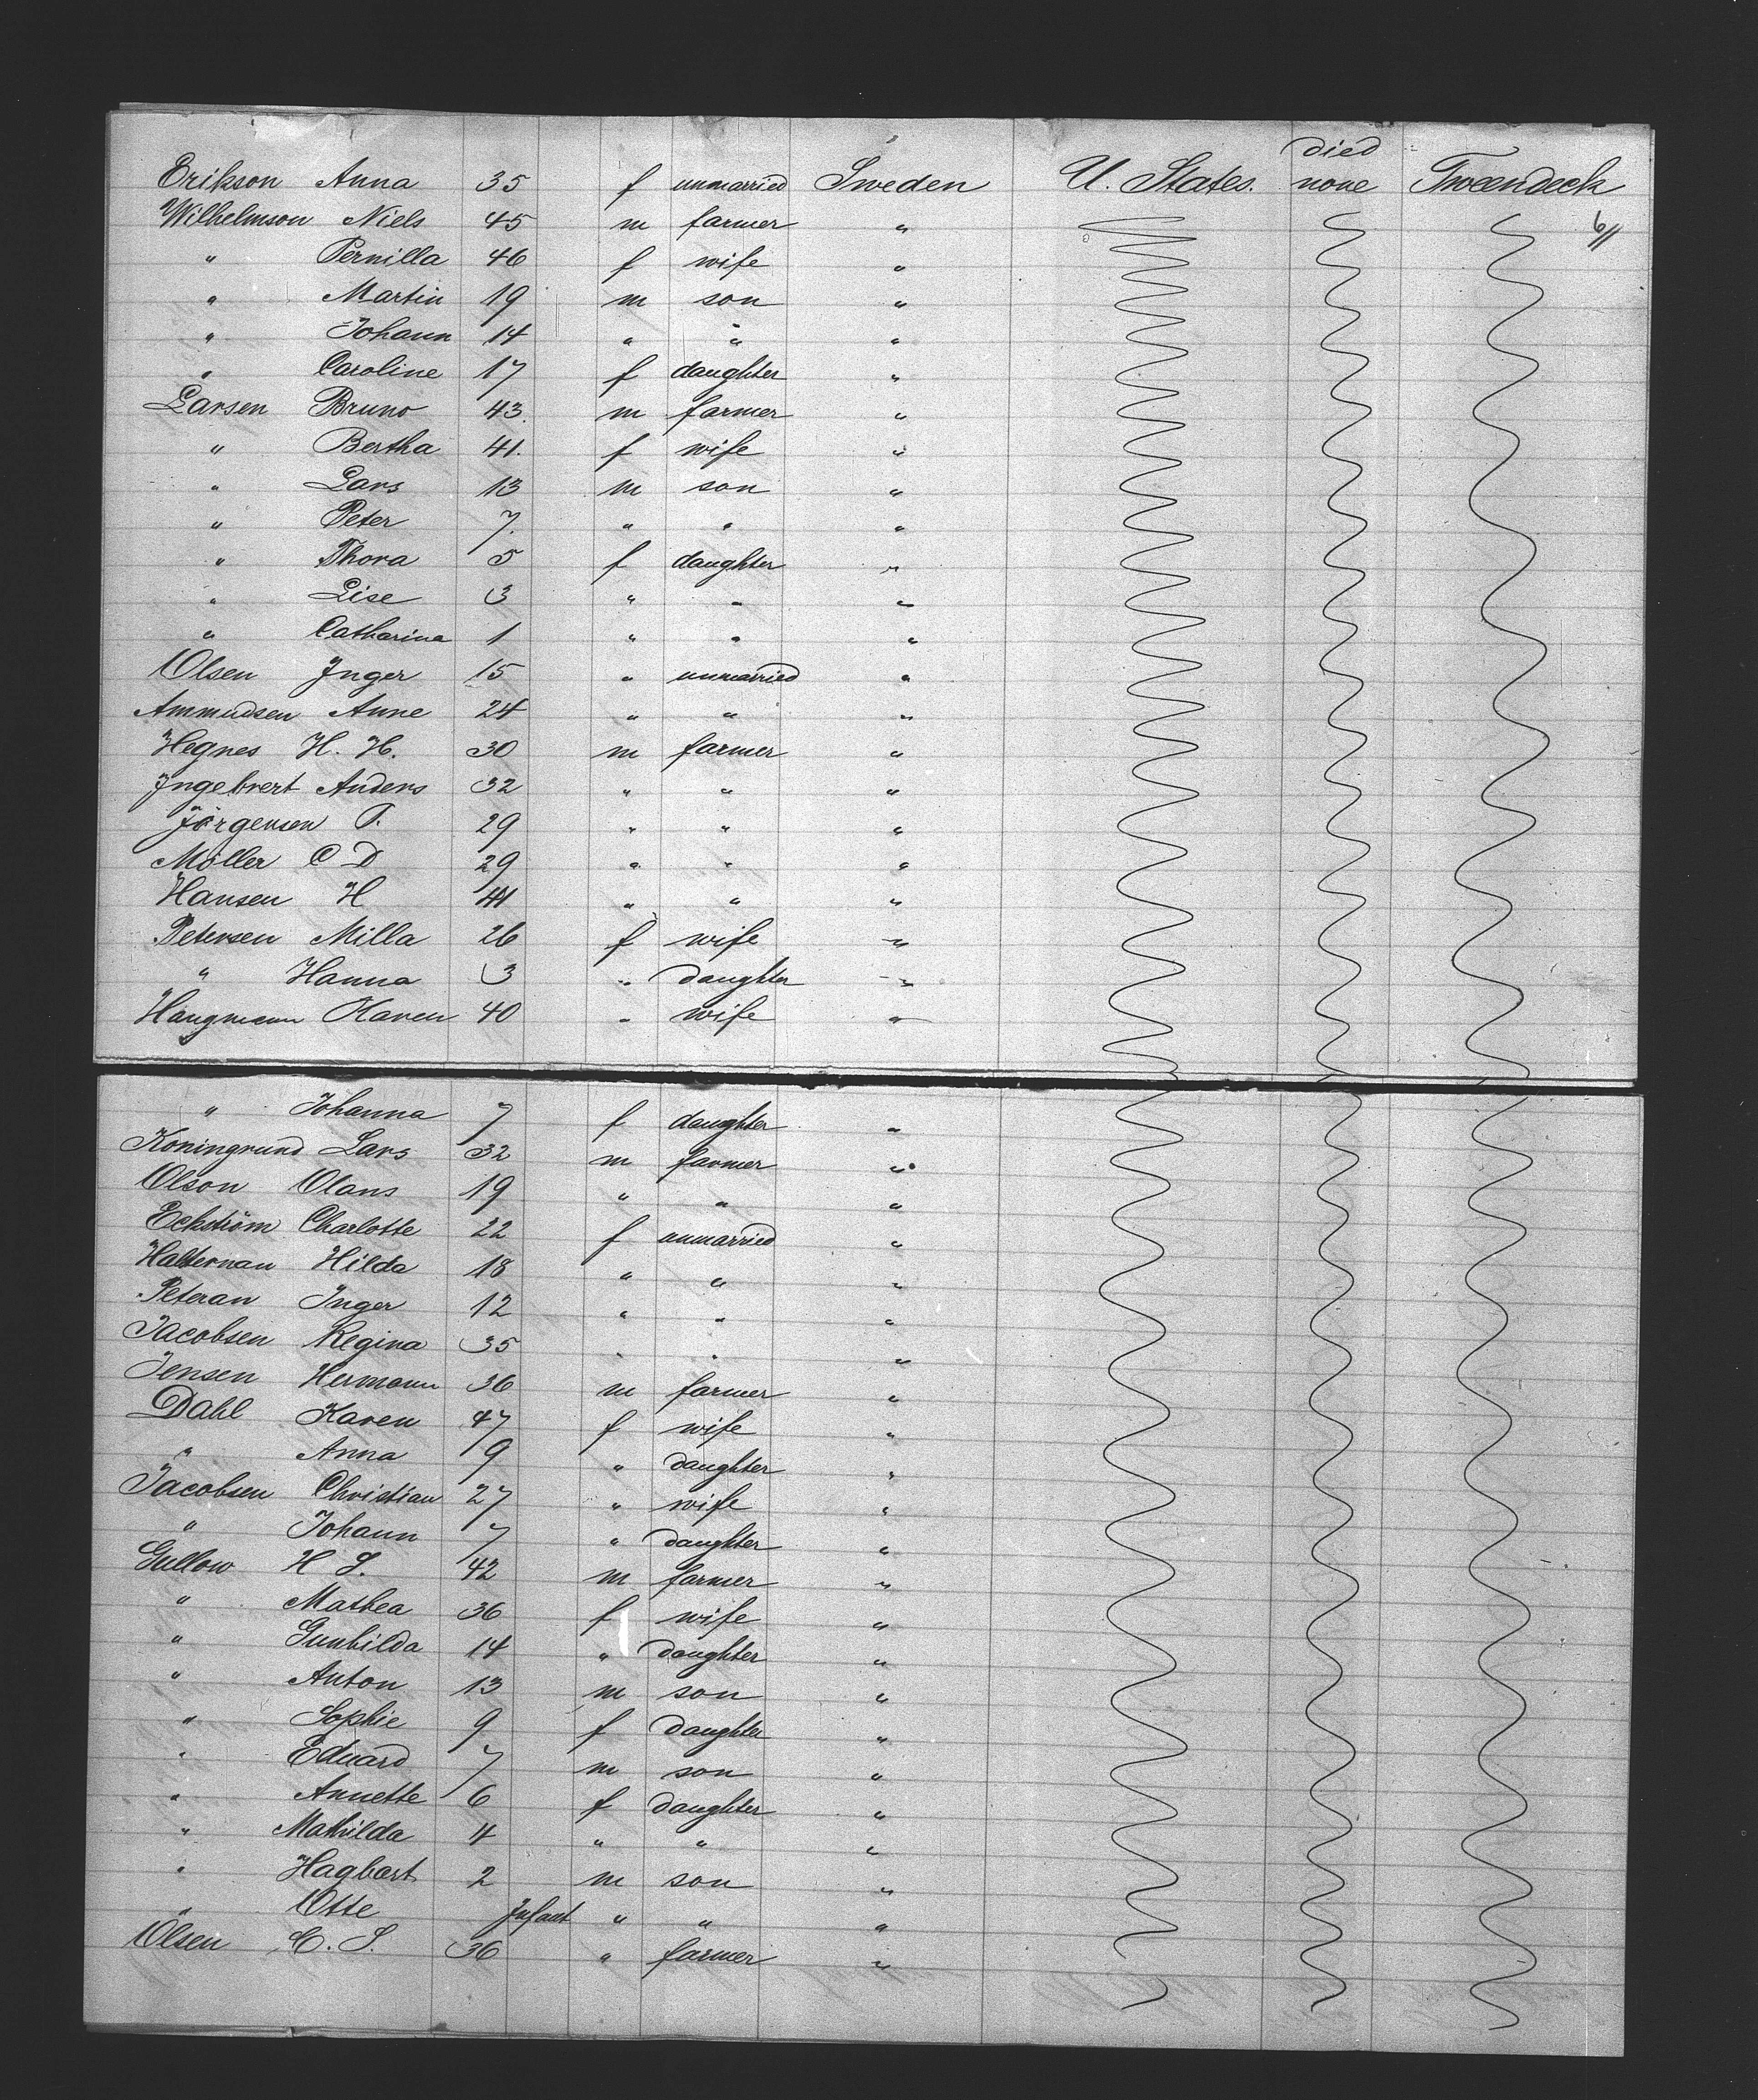 died
Erikson Anna 35 f unmarried Sweden U. States. none Tweendeck
Wilhelmson Niels 45 m farmer " 6//
" Pernilla 46 f wife "
" Martin 19 m son "
" Johann 14 " " "
" Caroline 17 f daughter "
Larsen Bruno 43. m farmer "
" Bertha 41. f wife "
" Lars 13 m son "
" Peter 7. " " "
" Thora 5 f daughter "
" Lise 3 " " "
" Catharina 1 " " "
Olsen Inger 15 " unmarried "
Ammudsen Anne 24 " " "
Hegnes H. H. 30 m farmer "
Ingebrert Anders 32 " " "
Jörgensen P. 29 " " "
Möller C D 29 " " "
Hansen H 41 " " "
Petersen Milla 26 f wife "
" Hanna 3 " daughter "
Haugmann Karen 40 " wife "
" Johanna 7 f daughter "
Koningrund Lars 32 m farmer "
Olson Olans 19 " " "
Eckström Charlotte 22 f unmarried "
Halternan Hilda 18 " " "
Peteran Inger 12 " " "
Jacobsen Regina 35 " " "
Jensen Hermann 36 m farmer "
Dahl Karen 47 f wife "
" Anna 9 " daughter "
Jacobsen Christian 27 " wife "
" Johann 7 " daughter "
Gullow H S. 42 m farmer "
" Mathea 36 f wife "
" Gunhilda 14 " daughter "
" Anton 13 m son "
" Sophie 9 f daughter "
" Eduard 7 m son "
" Annette 6 f daughter "
" Mathilda 4 " " "
" Hagbart 2 m son "
" Otte Infant " " "
Olsen C. S. 36 " farmer "